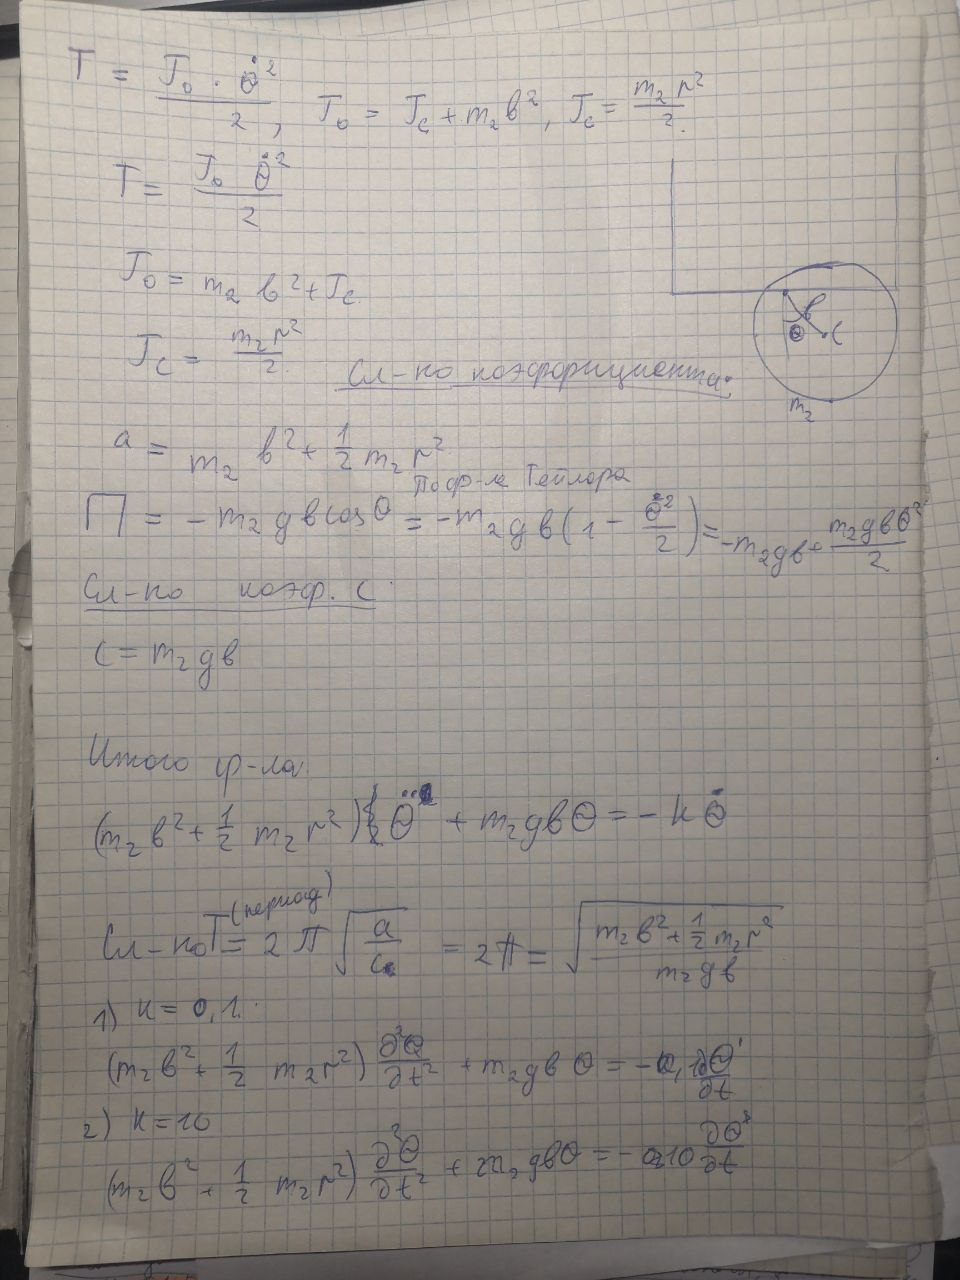 T = J₀ · θ̇² / 2, J₀ = J_c + m₂b², J_c = m₂r² / 2.
T = J₀ θ̇² / 2
J₀ = m₂ b² + J_c.
J_c = m₂r² / 2.
b
θ C
m₂
Сл-но коэффициента:
a = m₂ b² + 1/2 m₂ r²
По ф-ле Тейлора
П = - m₂ g b cos θ = - m₂ g b (1 - θ̇² / 2) = - m₂gb + m₂gbθ² / 2
Сл-но коэф. C.
C = m₂ g b
Итого ф-ла:
(m₂ b² + 1/2 m₂ r²) θ̈ + m₂gbθ = - k θ̇
(период)
Сл-но T = 2π √(a / c) = 2π = √((m₂b² + 1/2 m₂r²) / m₂gb)
1) k = 0,1.
(m₂b² + 1/2 m₂r²) ∂²θ/∂t² + m₂gb θ = - 0,1 ∂θ/∂t
2) k = 10
(m₂b² + 1/2 m₂r²) ∂²θ/∂t² + m₂gbθ = - 10 ∂θ/∂t